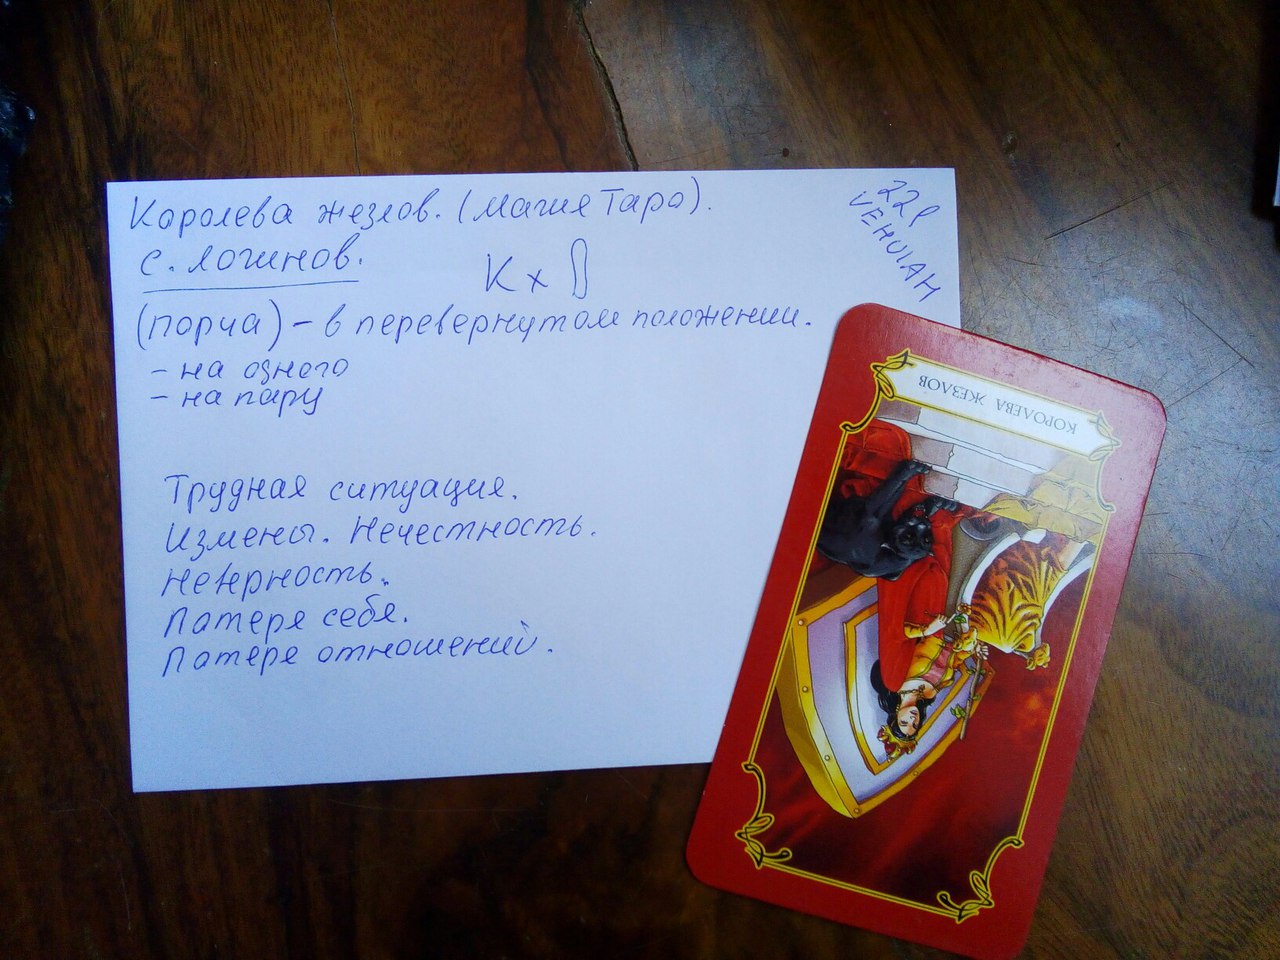 Королева жезлов. (Магия Таро).
С. Логинов.
К х
(порча) – в перевернутом положении.
– на одного
– на пару
Трудная ситуация.
Измены. Нечестность.
Неверность.
Патеря себя.
Патеря отношений.
VEHUIAH
КОРОЛЕВА ЖЕЗЛОВ